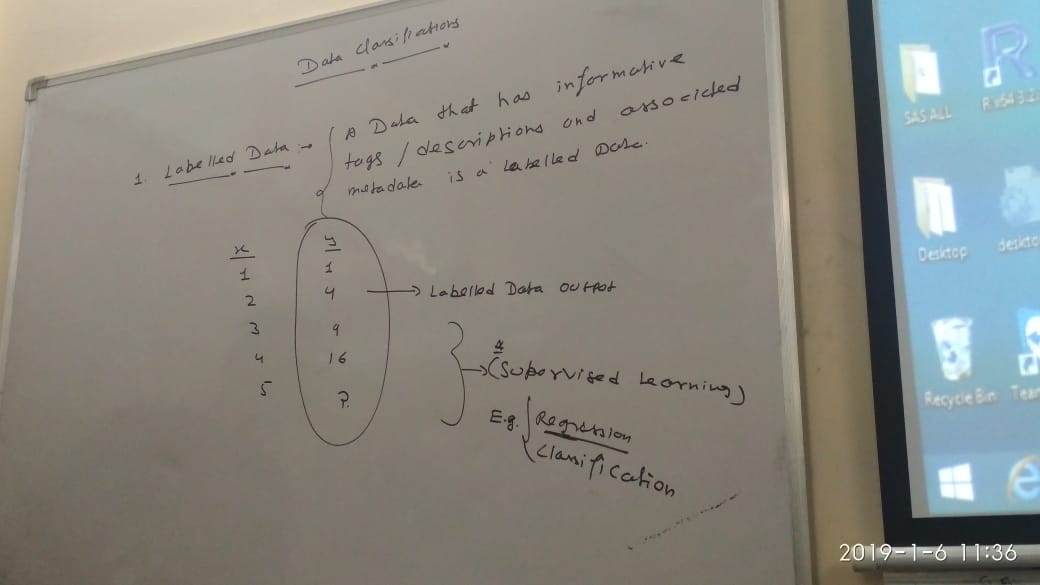 Data Classifications
1. Labelled Data :→
A Data that has informative
tags / descriptions and associcted
metadata is a Labelled Data.
x y
1 1
2 4 → Labelled Data output
3 9
4 16
5 ?
→ (Supervised Learning)
E.g. Regression
Classification
SAS ALL
Desktop
Recycle Bin
2019-1-6 11:36